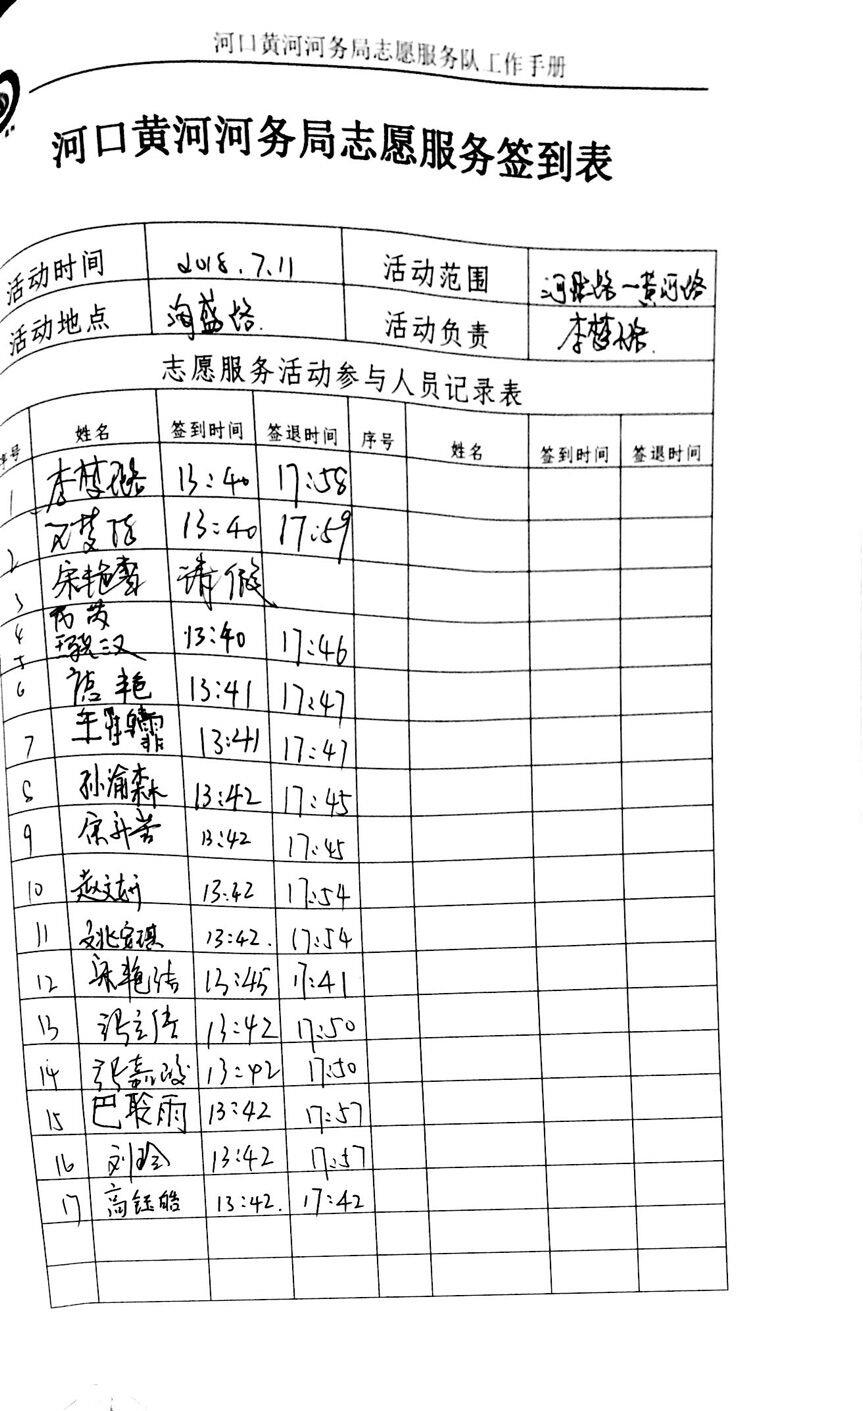 河口黄河河务局志愿服务队工作手册
河口黄河河务局志愿服务签到表
活动时间 2018.7.11 活动范围 河胜路—黄河路
活动地点 淘盛路. 活动负责 李梦璐.
志愿服务活动参与人员记录表
序号 姓名 签到时间 签退时间 序号 姓名 签到时间 签退时间
1 李梦璐 13:40 17:58
2 13:40 17:59
3 宋艳雪 请假
4
5 13:40 17:46
6 艳 13:41 17:47
7 13:41 17:47
8 孙渝森 13:42 17:45
9 13:42 17:45
10 赵文妍 13:42 17:54
11 姚安琪 13:42. 17:54
12 宋艳洁 13:45 17:41
13 13:42 17:50
14 张嘉 13:42 17:50
15 巴聆雨 13:42 17:57
16 刘玲 13:42 17:57
17 高钰皓 13:42. 17:42